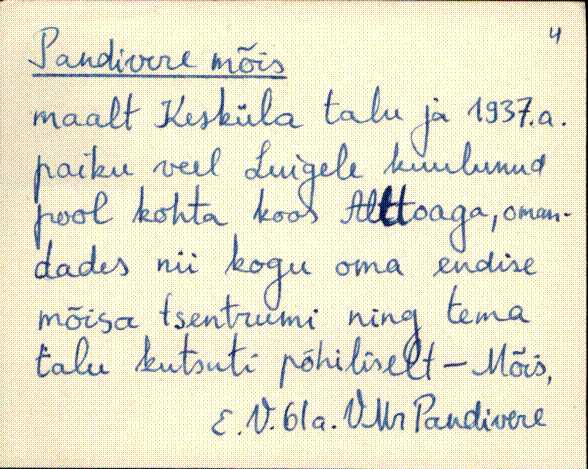 4
Pandivere mõis
maalt Kesküla talu ja 1937.a.
paiku veel Luigele kuulunud
pool kohta koos Alttoaga, oman-
dades nii kogu oma endise
mõisa tsentrumi ning tema
talu kutsuti põhiliselt - Mõis,
E.V. 61a. VMr Pandivere